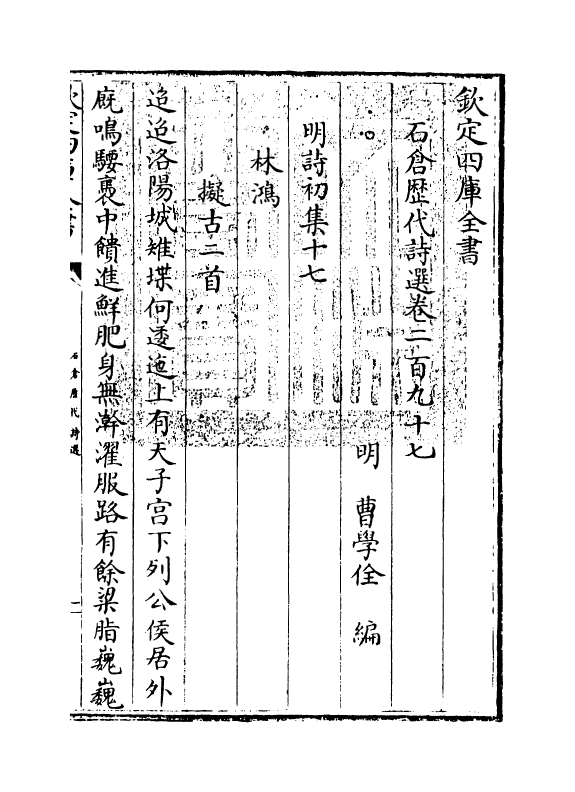 欽定四庫全書
石倉歴代詩選卷二百九十七
明 曹學佺 編
明詩初集十七
林鴻
擬古二首
迢迢洛陽城雉堞何逶迤上有天子宫下列公侯居外
廐鳴騕褭中饋進鮮肥身無澣濯服路有餘粱脂巍巍
欽定四庫全書
石倉歷代詩選
一